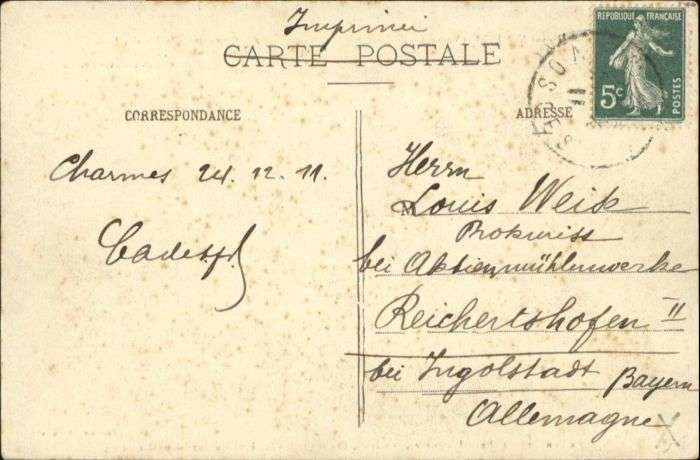 Imprimé
CARTE POSTALE
RÉPUBLIQUE FRANÇAISE
5c
POSTES
CORRESPONDANCE
ADRESSE
Charmes 24.12.11.
Herrn
M Louis Weik
Prokurist
bei Aktienmühlenwerke
Reichertshofen II
bei Ingolstadt Bayern
Allemagne